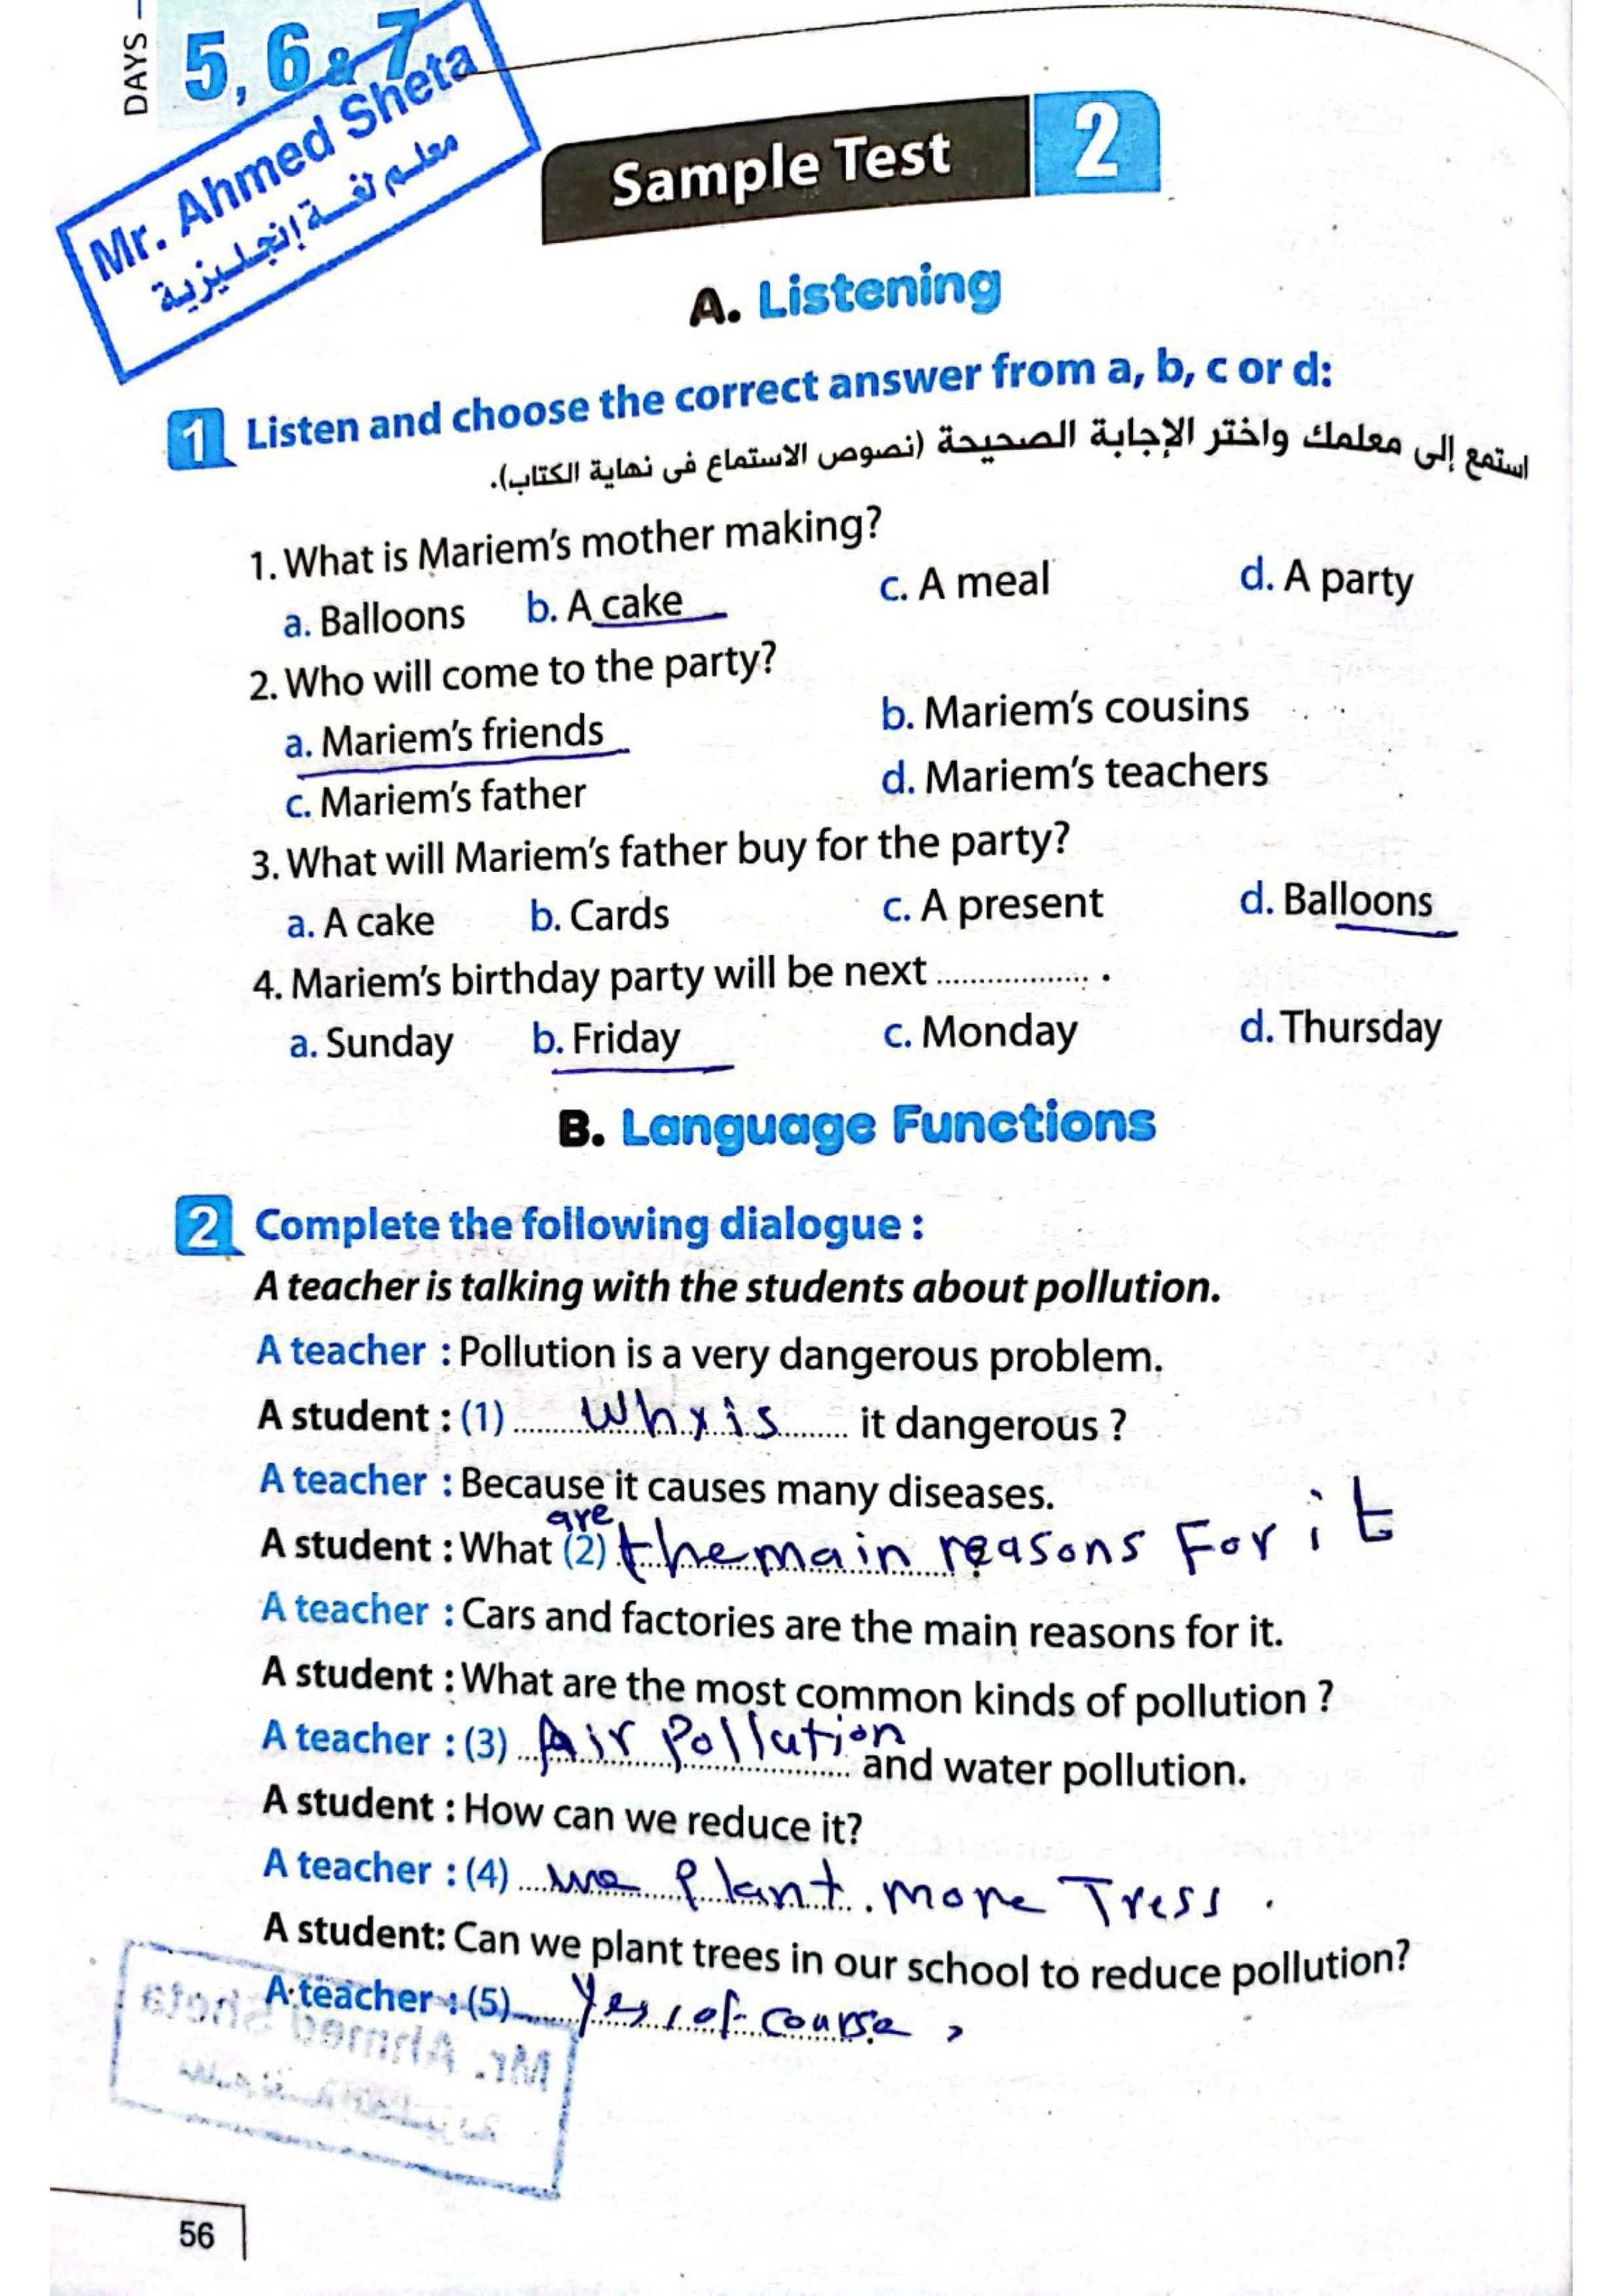 DAYS –
5, 6 & 7
Mr. Ahmed Sheta
معلم لغة إنجليزية
Sample Test 2
A. Listening
1 Listen and choose the correct answer from a, b, c or d:
استمع إلى معلمك واختر الإجابة الصحيحة (نصوص الاستماع فى نهاية الكتاب).
1. What is Mariem's mother making?
a. Balloons b. A cake c. A meal d. A party
2. Who will come to the party?
a. Mariem's friends b. Mariem's cousins
c. Mariem's father d. Mariem's teachers
3. What will Mariem's father buy for the party?
a. A cake b. Cards c. A present d. Balloons
4. Mariem's birthday party will be next ................. .
a. Sunday b. Friday c. Monday d. Thursday
B. Language Functions
2 Complete the following dialogue :
A teacher is talking with the students about pollution.
A teacher : Pollution is a very dangerous problem.
A student : (1) Why is it dangerous ?
A teacher : Because it causes many diseases.
are
A student : What (2) the main reasons For it ?
A teacher : Cars and factories are the main reasons for it.
A student : What are the most common kinds of pollution ?
A teacher : (3) Air Pollution and water pollution.
A student : How can we reduce it?
A teacher : (4) we Plant more Tress .
A student: Can we plant trees in our school to reduce pollution?
A teacher : (5) Yes, of course ,
Mr. Ahmed Sheta
56